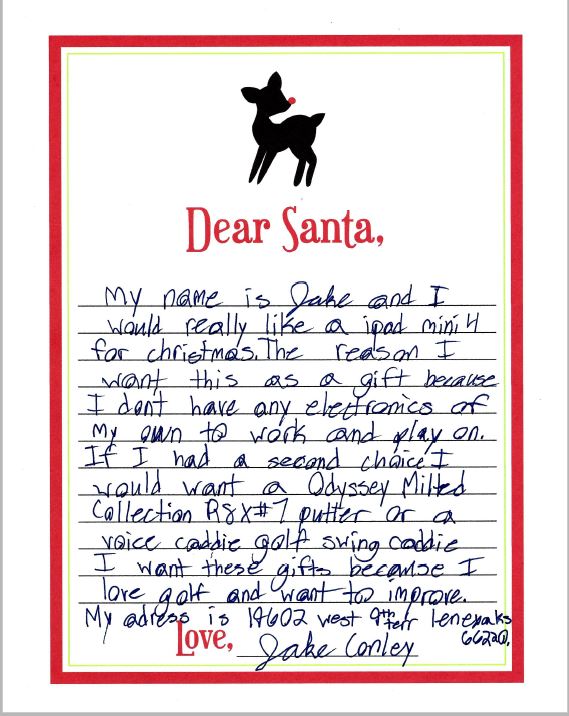 Dear Santa,
My name is Jake and I
would really like a ipad mini 4
for christmas. The reason I
want this as a gift because
I dont have any electronics of
My own to work and play on.
If I had a second choice I
would want a Odyssey Milted
Collection RSX#7 putter or a
voice caddie golf swing caddie
I want these gifts because I
love golf and want to improve.
My adress is west lenexa ks
66220.
Love, Jake Conley